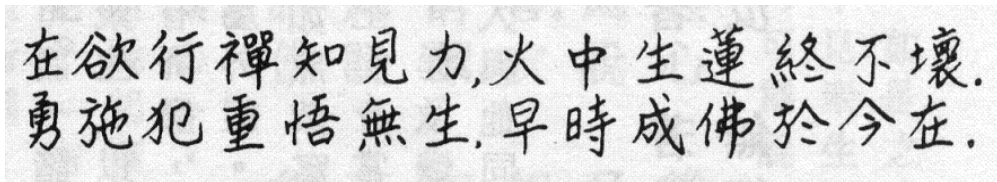 在欲行禪知見力,火中生蓮終不壞.
勇施犯重悟無生,早時成佛於今在.